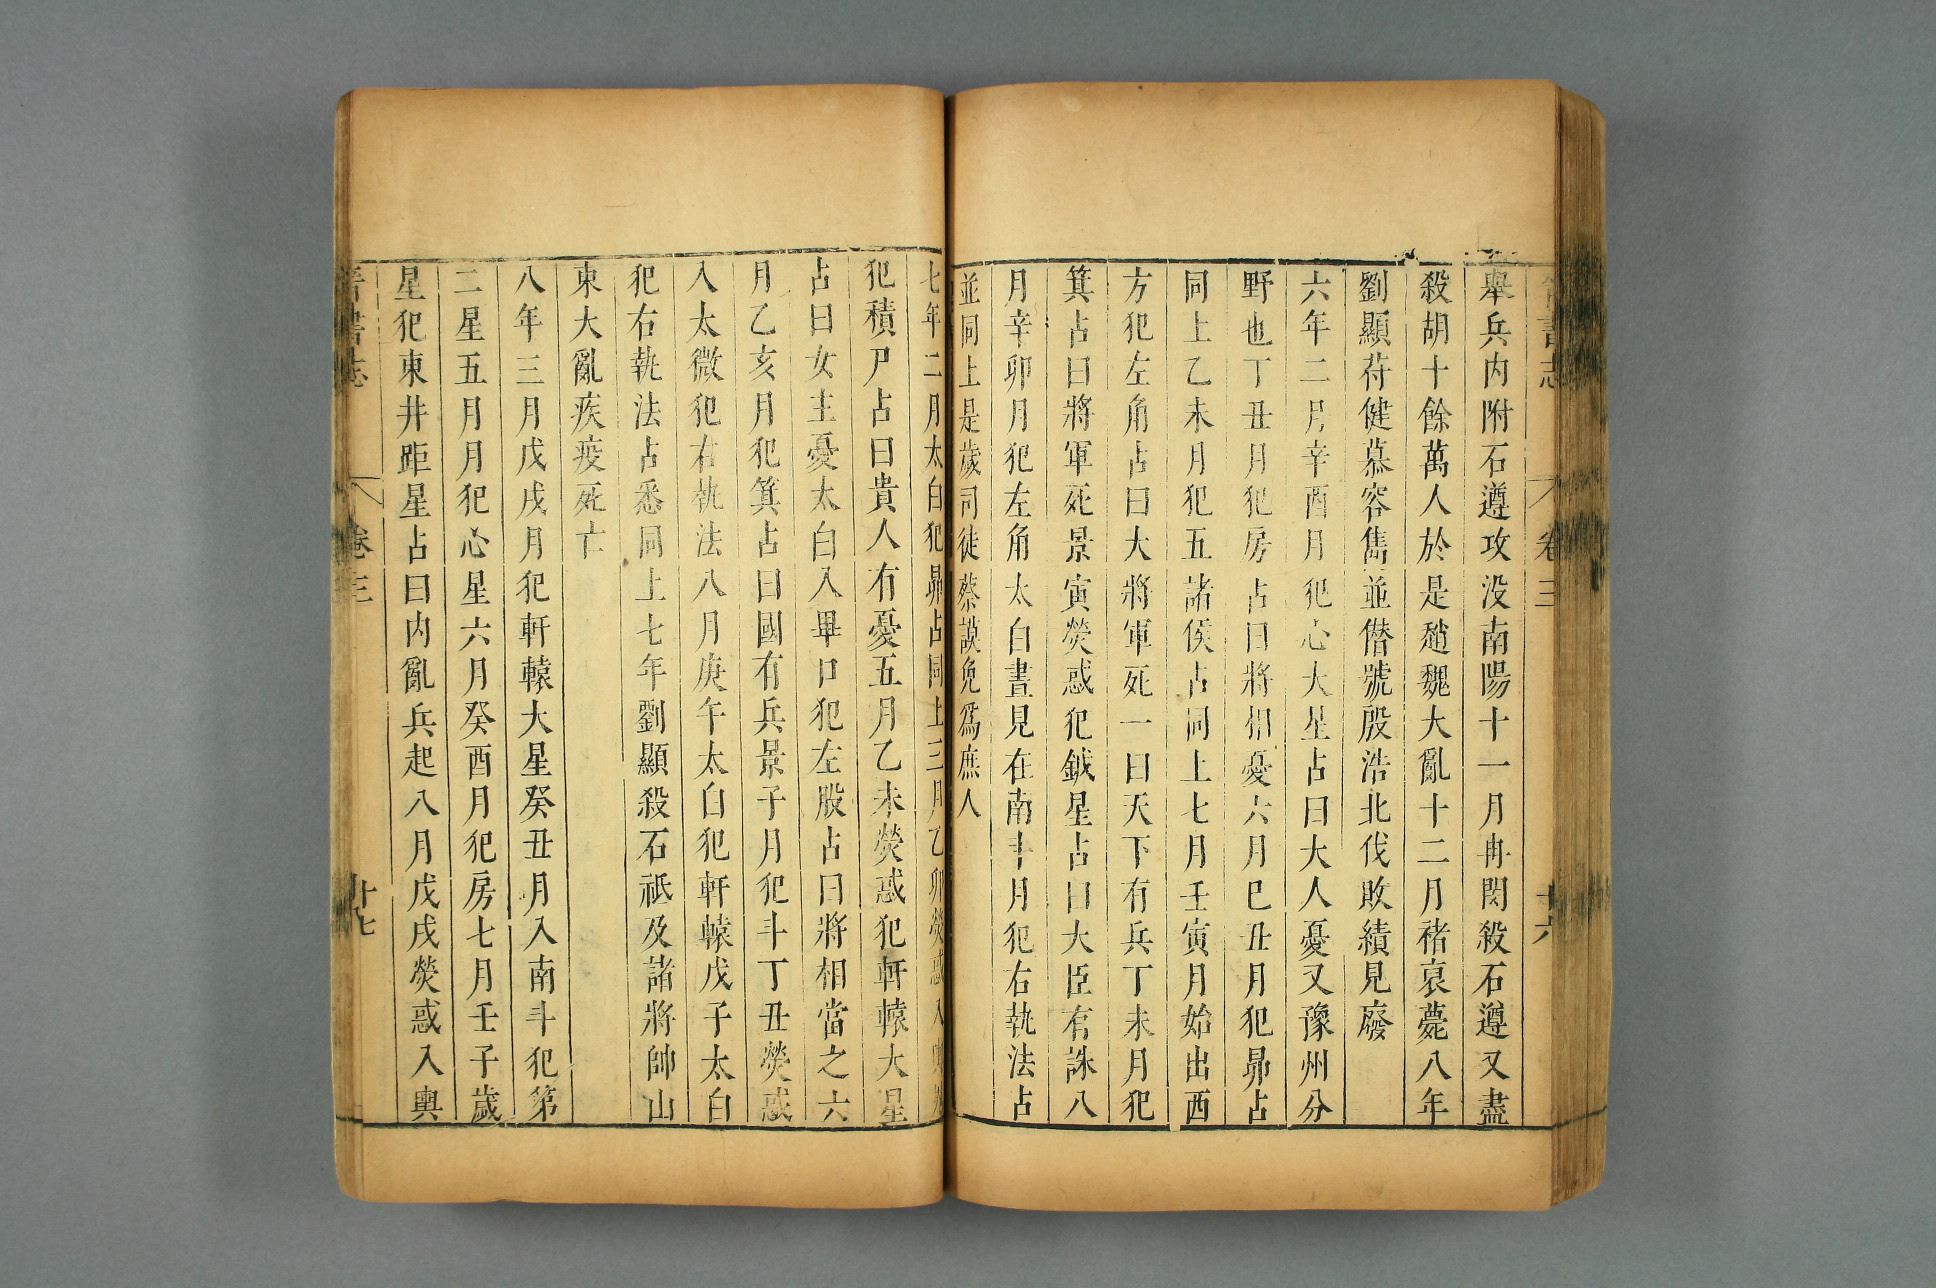 晉書志 卷三 十六
舉兵内附石遵攻没南陽十一月冉閔殺石遵又盡
殺胡十餘萬人於是趙魏大亂十二月褚裒薨八年
劉顯苻健慕容儁並僭號殷浩北伐敗績見廢
六年二月辛酉月犯心大星占曰大人憂又豫州分
野也丁丑月犯房占曰將相憂六月巳丑月犯昴占
同上乙未月犯五諸侯占同上七月壬寅月始出西
方犯左角占曰大將軍死一曰天下有兵丁未月犯
箕占曰將軍死景寅熒惑犯鉞星占曰大臣有誅八
月辛卯月犯左角太白晝見在南斗月犯右執法占
並同上是歲司徒蔡謨免爲庶人
七年二月太白犯昴占同上三月乙卯熒惑入輿鬼
犯積尸占曰貴人有憂五月乙未熒惑犯軒轅大星
占曰女主憂太白入畢口犯左股占曰將相當之六
月乙亥月犯箕占曰國有兵景子月犯斗丁丑熒惑
入太微犯右執法八月庚午太白犯軒轅戊子太白
犯右執法占悉同上七年劉顯殺石祗及諸將帥山
東大亂疾疫死亡
八年三月戊戌月犯軒轅大星癸丑月入南斗犯第
二星五月月犯心星六月癸酉月犯房七月壬子歲
星犯東井距星占曰内亂兵起八月戊戌熒惑入輿
晉書志 卷三 十七